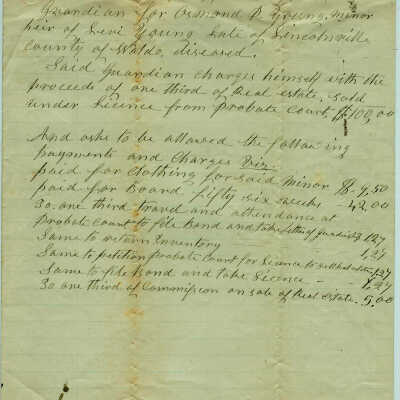 Guardian for Ormond P Young, Minor
heir of Levi Young late of Lincolnville
County of Waldo, diseased.
Said Guardian charges himself with the
proceeds of one third of Real estate, sold
under Licence from Probate Court $100,00
And asks to be allowed the following
payments and Charges Viz:
paid for Clothing for said Minor 8-9,50
paid for Board fifty six weeks - 42,00
So. one third travel and attendance at
Probate Court to file Bond and take letter of 1,27
Same to return Inventory 1,27
Same to petition Probate Court for licence to sell 1,27
Same to file Bond and take Licence - 1,27
So one third of Commission on sale of Real Estate. 5,00